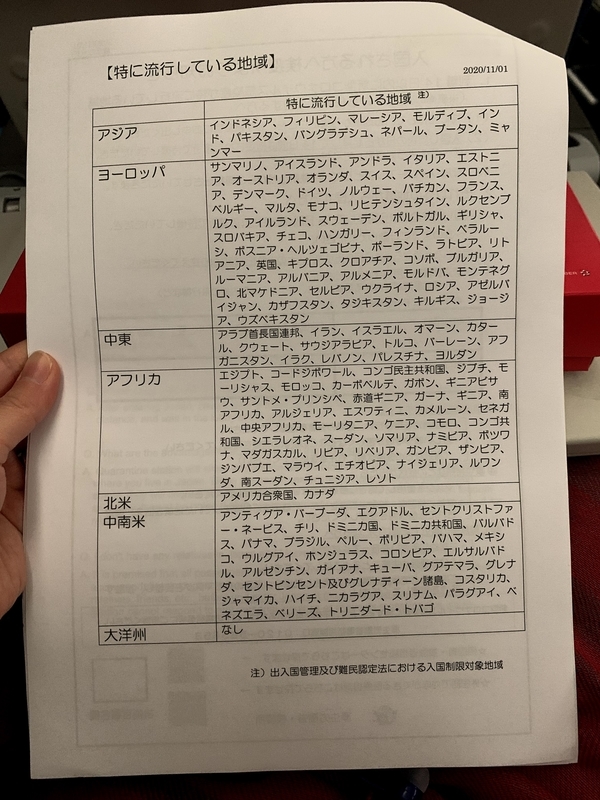 【特に流行している地域】
2020/11/01
特に流行している地域 注)
アジア
インドネシア、フィリピン、マレーシア、モルディブ、イン
ド、パキスタン、バングラデシュ、ネパール、ブータン、ミャ
ンマー
ヨーロッパ
サンマリノ、アイスランド、アンドラ、イタリア、エストニ
ア、オーストリア、オランダ、スイス、スペイン、スロベニ
ア、デンマーク、ドイツ、ノルウェー、バチカン、フランス、
ベルギー、マルタ、モナコ、リヒテンシュタイン、ルクセンブ
ルク、アイルランド、スウェーデン、ポルトガル、ギリシャ、
スロバキア、チェコ、ハンガリー、フィンランド、ベラルー
シ、ボスニア・ヘルツェゴビナ、ポーランド、ラトビア、リト
アニア、英国、キプロス、クロアチア、コソボ、ブルガリア、
ルーマニア、アルバニア、アルメニア、モルドバ、モンテネグ
ロ、北マケドニア、セルビア、ウクライナ、ロシア、アゼルバ
イジャン、カザフスタン、タジキスタン、キルギス、ジョージ
ア、ウズベキスタン
中東
アラブ首長国連邦、イラン、イスラエル、オマーン、カター
ル、クウェート、サウジアラビア、トルコ、バーレーン、アフ
ガニスタン、イラク、レバノン、パレスチナ、ヨルダン
アフリカ
エジプト、コートジボワール、コンゴ民主共和国、ジブチ、モ
ーリシャス、モロッコ、カーボベルデ、ガボン、ギニアビサ
ウ、サントメ・プリンシペ、赤道ギニア、ガーナ、ギニア、南
アフリカ、アルジェリア、エスワティニ、カメルーン、セネガ
ル、中央アフリカ、モーリタニア、ケニア、コモロ、コンゴ共
和国、シエラレオネ、スーダン、ソマリア、ナミビア、ボツワ
ナ、マダガスカル、リビア、リベリア、ガンビア、ザンビア、
ジンバブエ、マラウイ、エチオピア、ナイジェリア、ルワン
ダ、南スーダン、チュニジア、レソト
北米
アメリカ合衆国、カナダ
中南米
アンティグア・バーブーダ、エクアドル、セントクリストファ
ー・ネービス、チリ、ドミニカ国、ドミニカ共和国、バルバド
ス、パナマ、ブラジル、ペルー、ボリビア、バハマ、メキシ
コ、ウルグアイ、ホンジュラス、コロンビア、エルサルバド
ル、アルゼンチン、ガイアナ、キューバ、グアテマラ、グレナ
ダ、セントビンセント及びグレナディーン諸島、コスタリカ、
ジャマイカ、ハイチ、ニカラグア、スリナム、パラグアイ、ベ
ネズエラ、ベリーズ、トリニダード・トバゴ
大洋州
なし
注）出入国管理及び難民認定法における入国制限対象地域